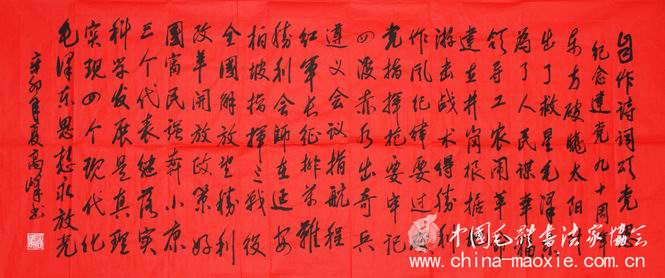 自作诗词颂党恩
纪念建党九十周年
东方破晓太阳升
出了救星毛泽东
为了人民谋幸福
领导工农闹革命
建立井岗根据地
游击战术得胜利
作风纪律要过硬
党指挥枪要牢记
四渡赤水出奇兵
遵义会议指航程
红军长征排万难
胜利会师在延安
柏坡指挥三战役
全国解放望胜利
改革开放政策好
国富民强奔小康
三个代表继落实
科学发展是真理
实现四个现代化
毛泽东思想永放光
辛卯年夏高峰书
中国毛体书法家协会
www.china-maoxie.com